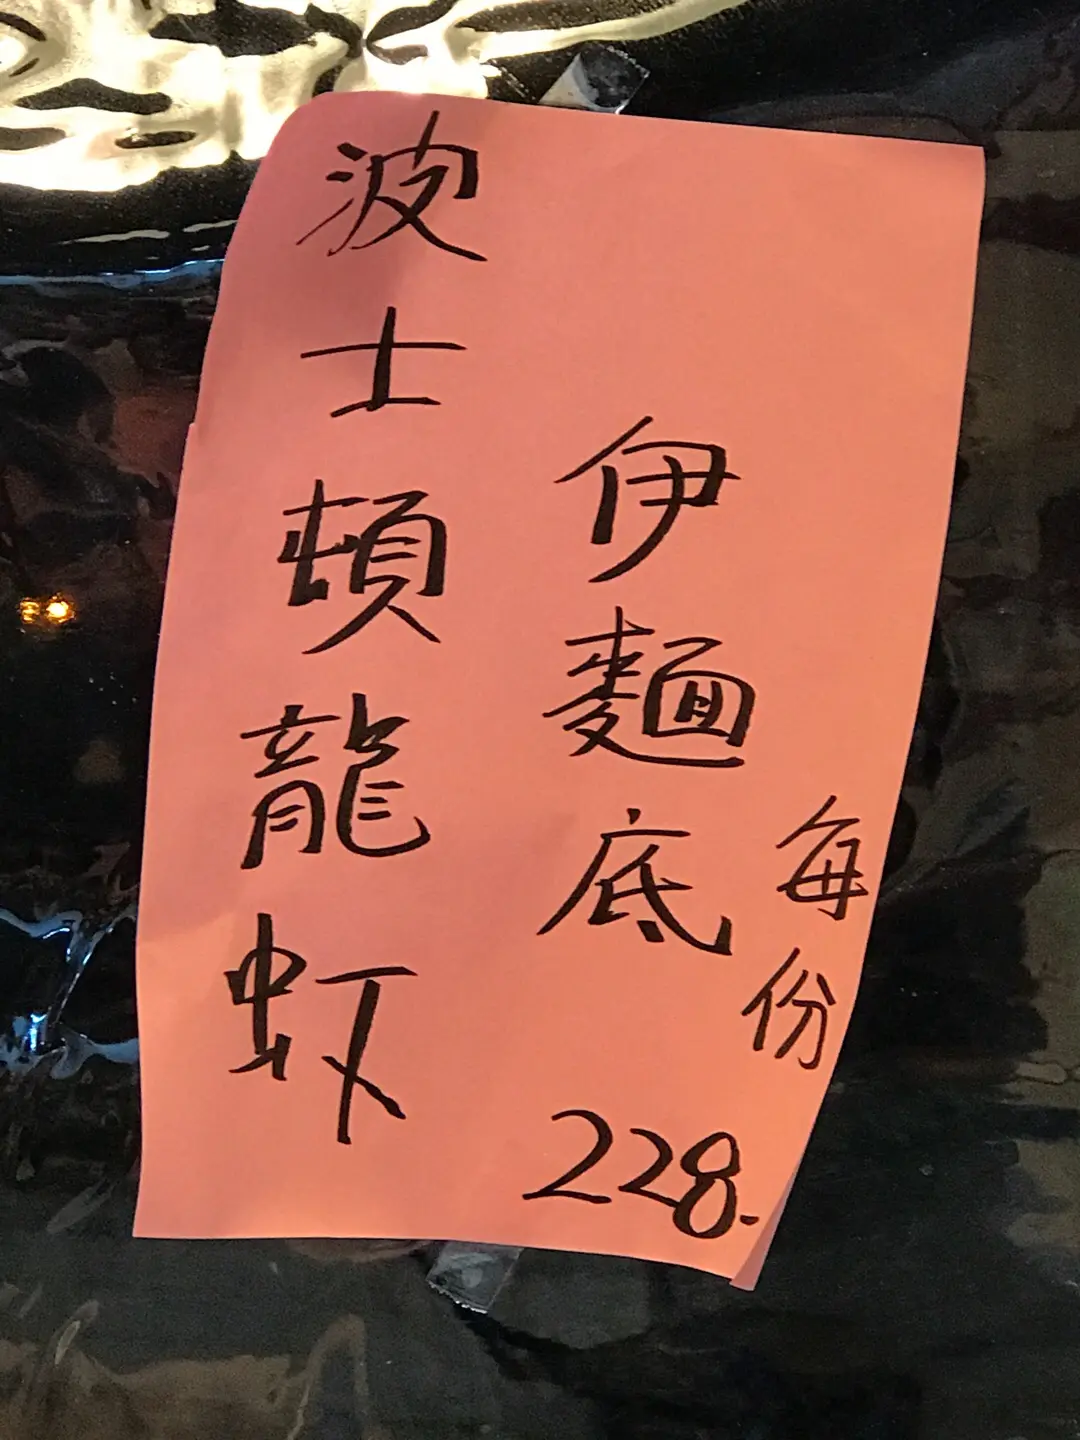 波士頓龍虾
伊麵底
每份
228.